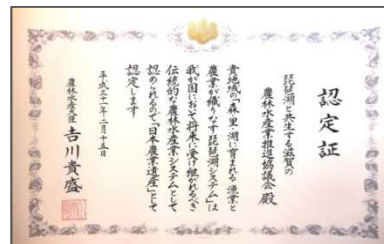 認定証
琵琶湖と共生する滋賀の
農林水産業推進協議会 殿
貴地域の「森・里・湖に育まれる 漁業と
農業が織りなす琵琶湖システム」は
我が国において将来に受け継がれるべき
伝統的な農林水産業システムとして
認められるので「日本農業遺産」として
認定します
平成三十一年二月十五日
農林水産大臣 吉川貴盛